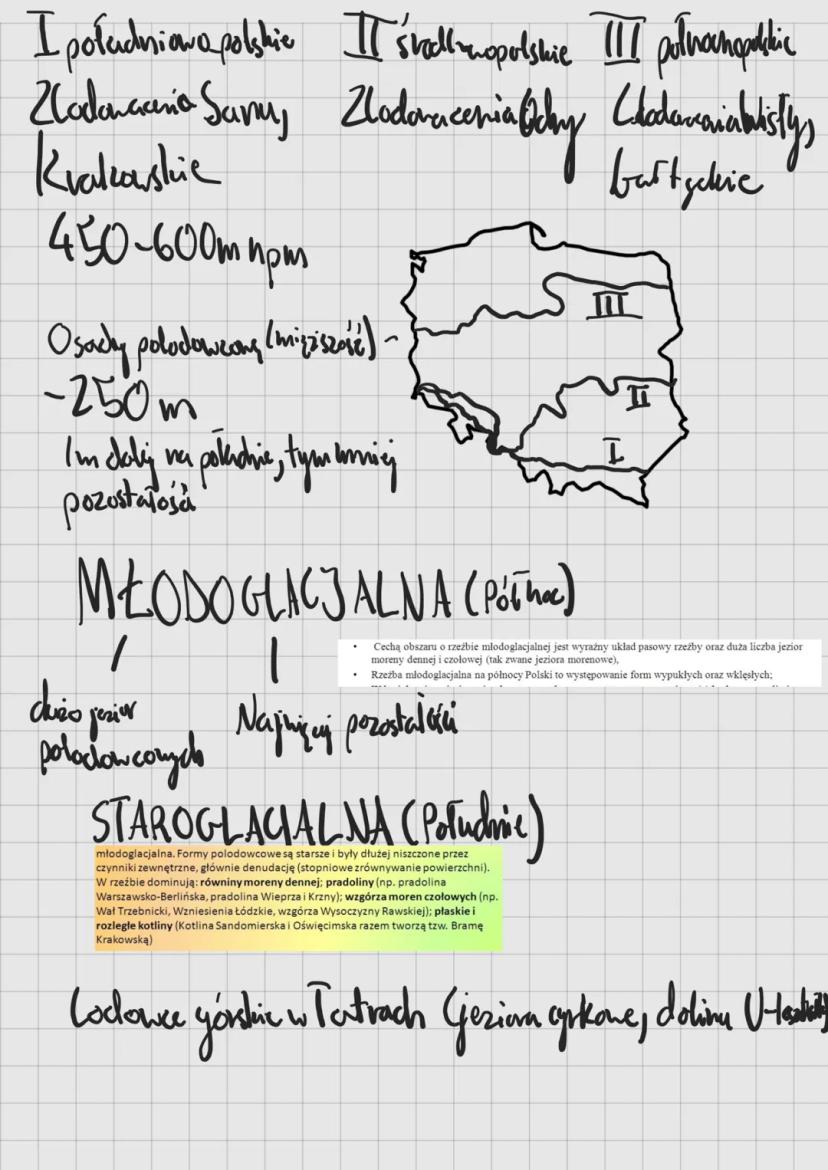 I południowopolskie
II środkowopolskie
III północnopolskie
Zlodowacenia Sanu,
Krakowskie
Zlodowacenia Odry
Zlodowacenia Wisły,
bałtyckie
450-600m npm
Osady polodowcowe (miąższość) -
~250 m
Im dalej na południe, tym mniej
pozostałości
III
II
I
MŁODOGLACJALNA (Północ)
• Cechą obszaru o rzeźbie młodoglacjalnej jest wyraźny układ pasowy rzeźby oraz duża liczba jezior
moreny dennej i czołowej (tak zwane jeziora morenowe),
• Rzeźba młodoglacjalna na północy Polski to występowanie form wypukłych oraz wklęsłych;
dużo jezior
polodowcowych
Najwięcej pozostałości
STAROGLACJALNA (Południe)
młodoglacjalna. Formy polodowcowe są starsze i były dłużej niszczone przez
czynniki zewnętrzne, głównie denudację (stopniowe zrównywanie powierzchni).
W rzeźbie dominują: równiny moreny dennej; pradoliny (np. pradolina
Warszawsko-Berlińska, pradolina Wieprza i Krzny); wzgórza moren czołowych (np.
Wał Trzebnicki, Wzniesienia Łódzkie, wzgórza Wysoczyzny Rawskiej); płaskie i
rozległe kotliny (Kotlina Sandomierska i Oświęcimska razem tworzą tzw. Bramę
Krakowską)
Lodowce górskie w Tatrach (jeziora cyrkowe, dolina U-